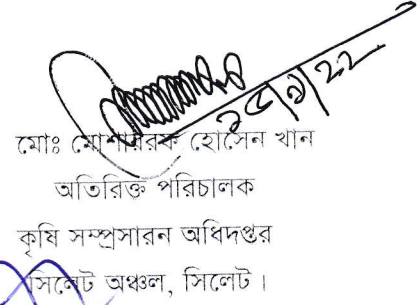 ২৫/৯/২২
মোঃ মোশাররফ হোসেন খান
অতিরিক্ত পরিচালক
কৃষি সম্প্রসারন অধিদপ্তর
সিলেট অঞ্চল, সিলেট।